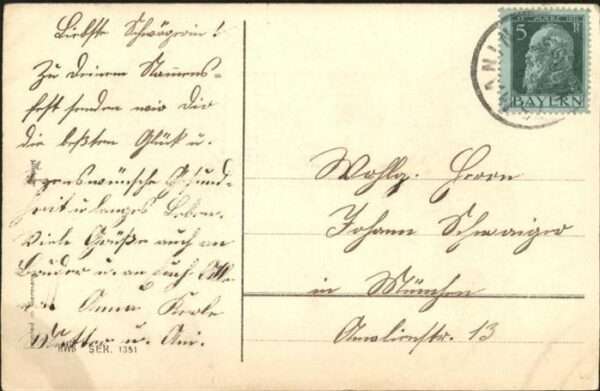 Liebste Schwägerin!
Zu Deinem Namens-
fest senden wir Dir
die beßten Glück u.
Segenswünsche Gesund-
heit u langes Leben.
Viele Grüße auch an
Bruder u. an Euch Alle
Anna Karle
Mutter u. Ani.
HWB SER. 1351
5
BAYERN
Wohlg. Herrn
Johann Schwaiger
in München
Amalienstr. 13